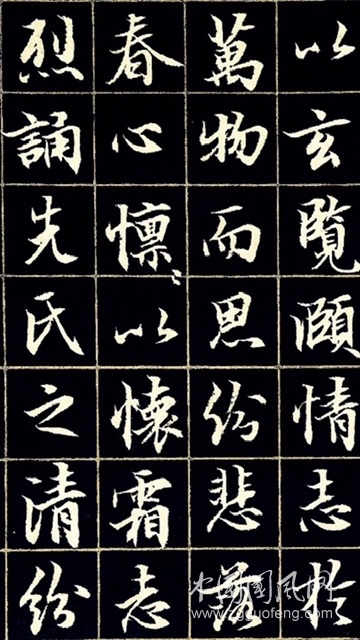 以玄覽頤情志於
萬物而思紛悲落
春心懍〻以懷霜志
烈誦先氏之清紛
中国国风网
www.zgguofeng.com